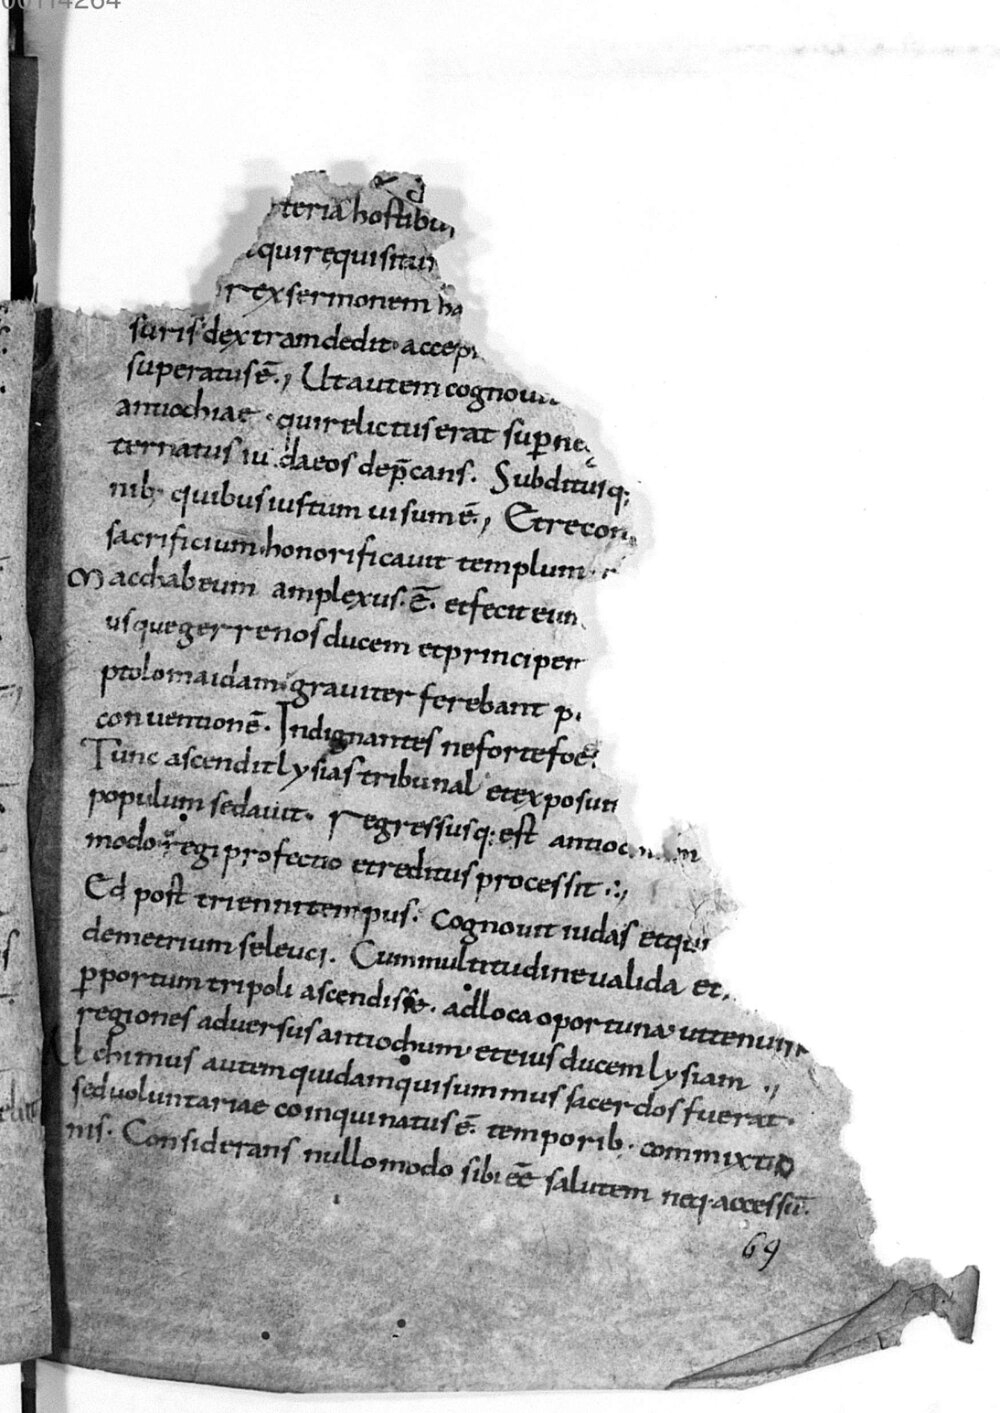 00114264
teria hostibu
qui requisitu
rex sermonem ha
suris dextram dedit accep
superatus ē., Ut autem cognou
antiochiae qui relictus erat sup ne
ternatus iudaeos dep̄cans. Subditusq;
nib; quibus iustum uisum ē., Et recon
sacrificium honorificauit templum
Macchabeum amplexus.ē. et fecit eum
usque gerrenos ducem et principem
ptolomaidam grauiter ferebant p
conuentionē. Indignantes ne forte foe
Tunc ascendit lysias tribunal et exposuit
populum sedauit. regressusq; est antioc
modo regi profectio et reditus processit .:,
Ed post triennii tempus. Cognouit iudas et qui
demetrium seleuci. Cum multitudine ualida et
p portum tripoli ascendisse. ad loca oportuna ut tenuiss
regiones aduersus antiochum et eius ducem lysiam .,
Alchimus autem quidam qui summus sacerdos fuerat.
sed uoluntariae coinquinatus ē. temporib. commixtio
nis. Considerans nullo modo sibi eē salutem neq. accessū.
69